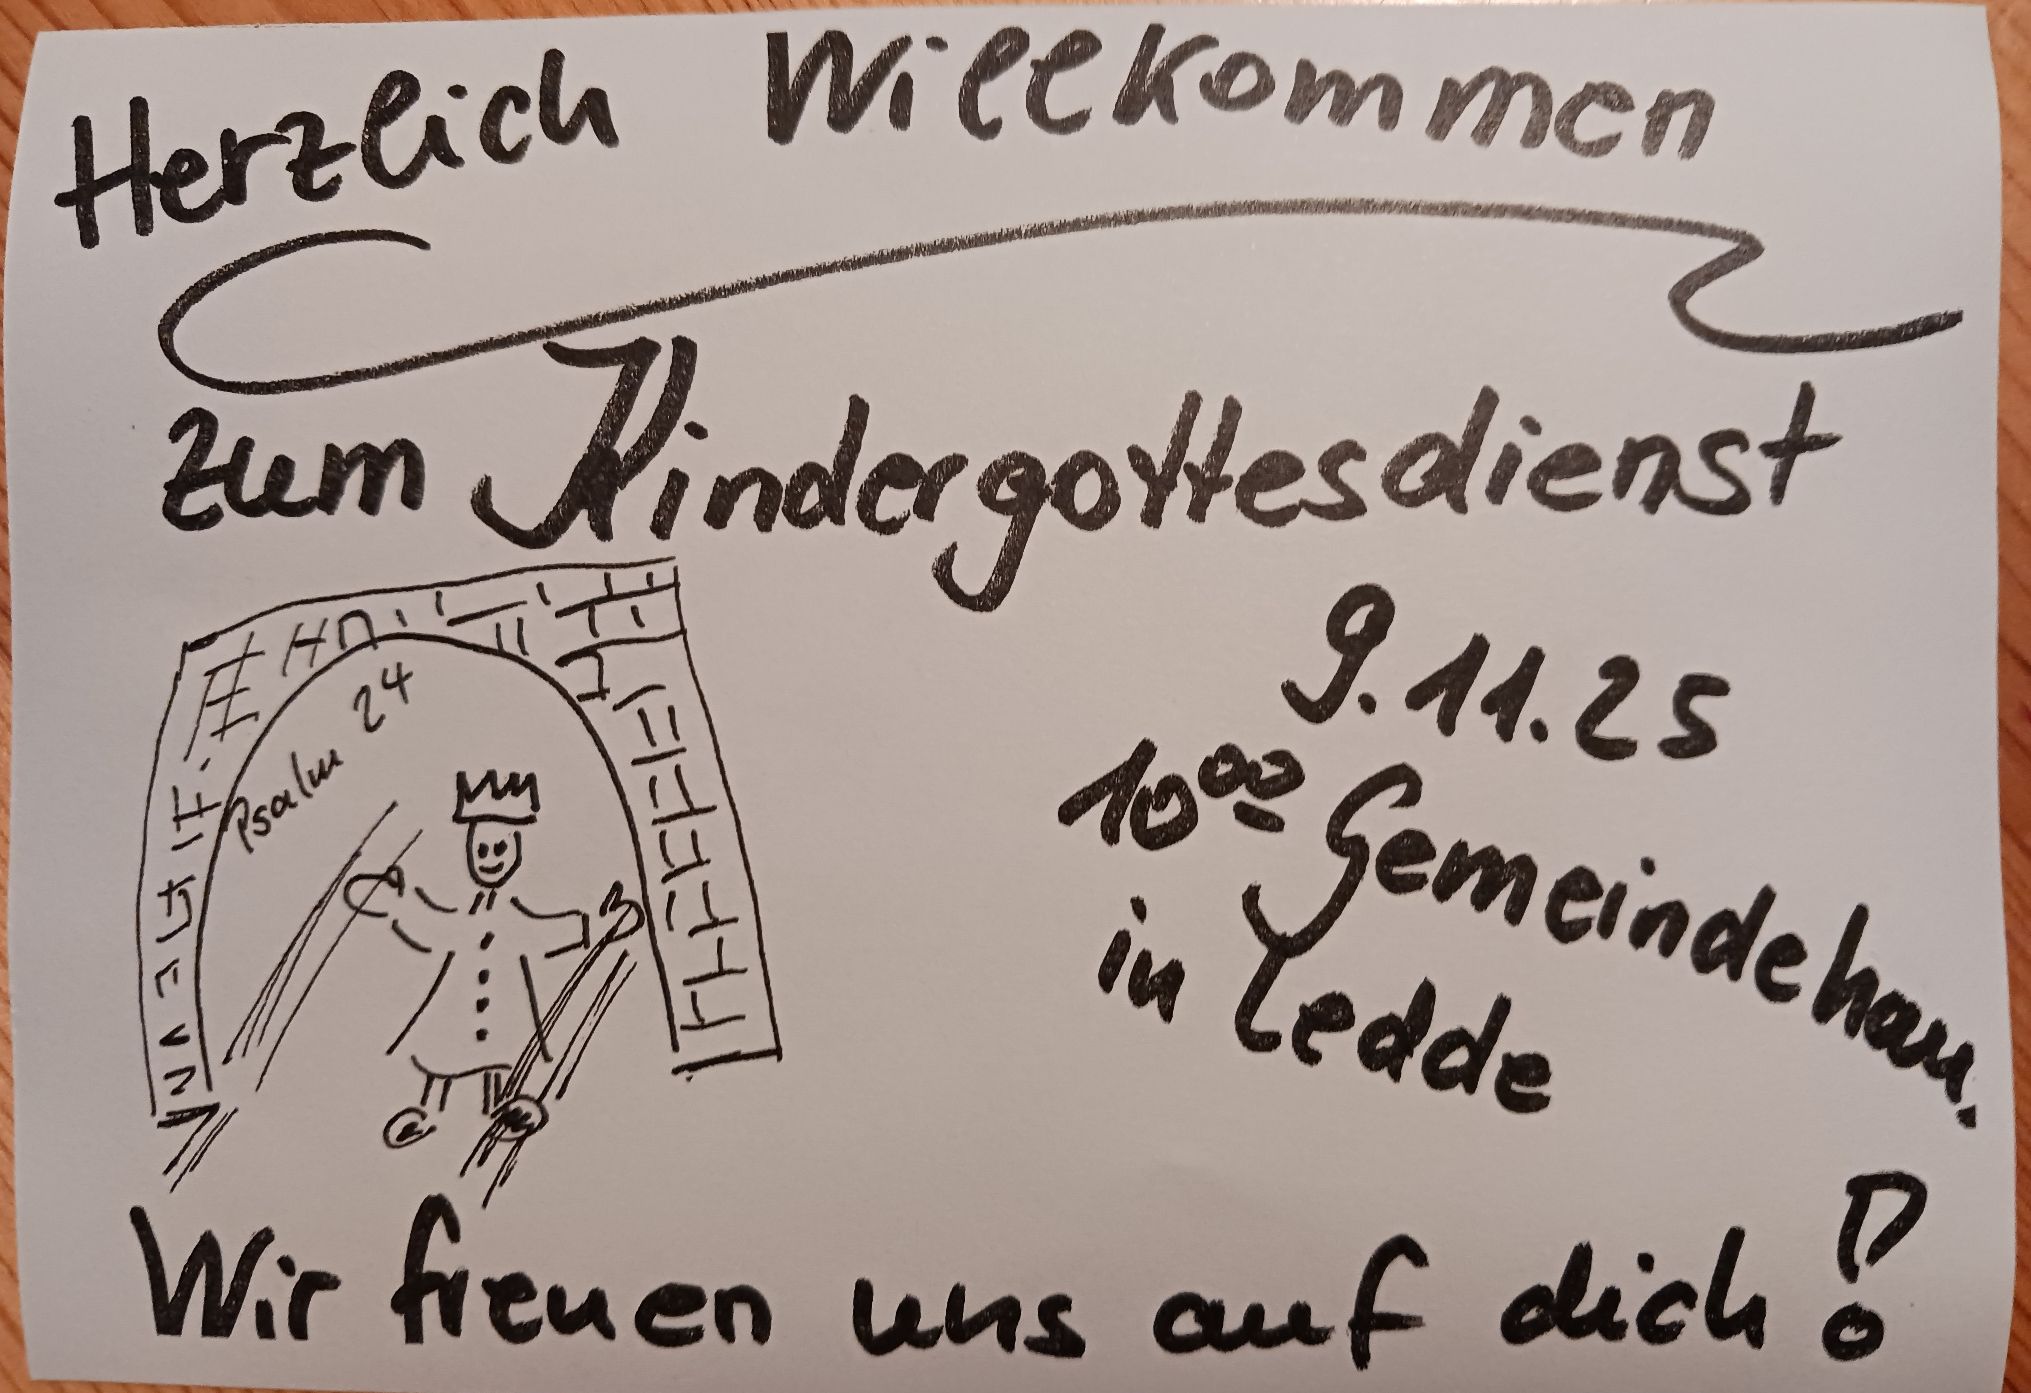 Herzlich Willkommen
zum Kindergottesdienst
Psalm 24
9.11.25
10⁰⁰ Gemeindehau.
in Ledde
Wir freuen uns auf dich!